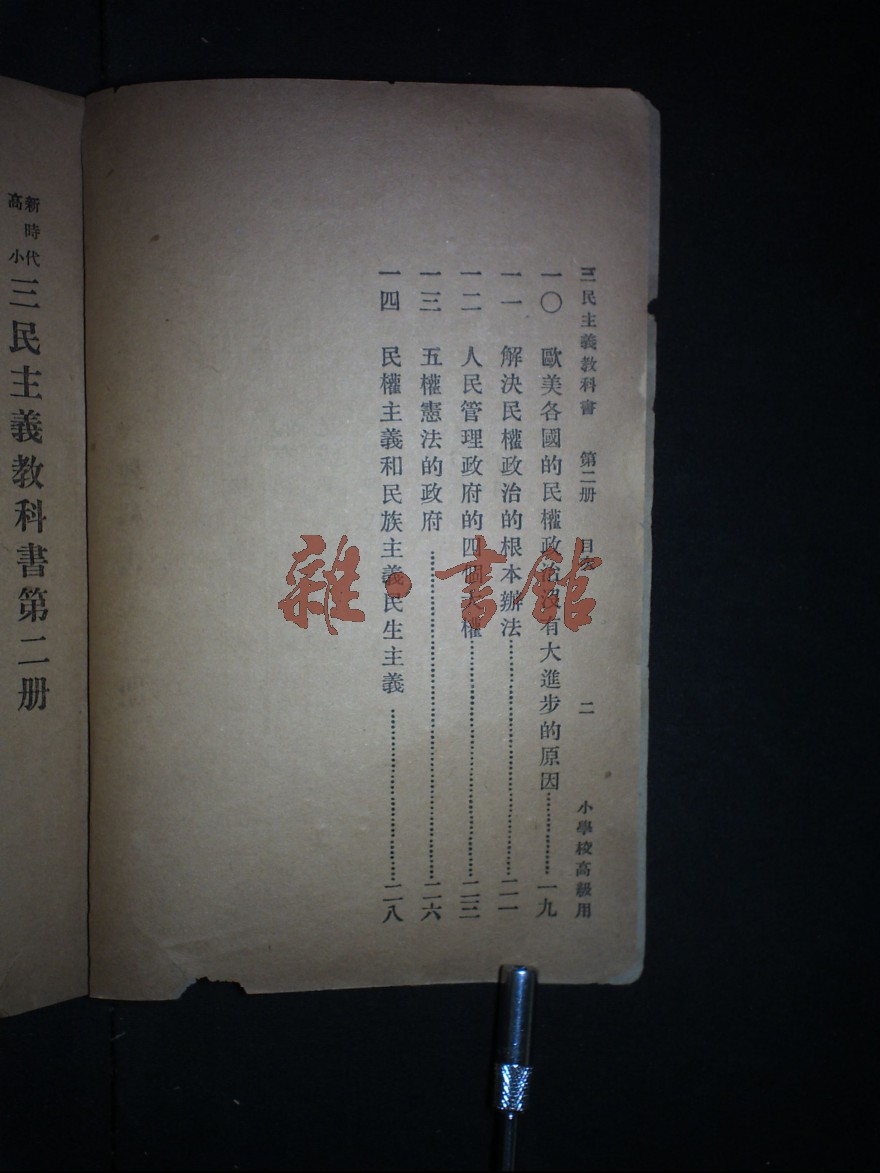 三民主義教科書 第二册 目次 二 小學校高級用
一〇 歐美各國的民權政治沒有大進步的原因………一九
一一 解決民權政治的根本辦法………二一
一二 人民管理政府的四個大權………二三
一三 五權憲法的政府………二六
一四 民權主義和民族主義民生主義………二八
新時代
高小
三民主義教科書第二册
雜·書館